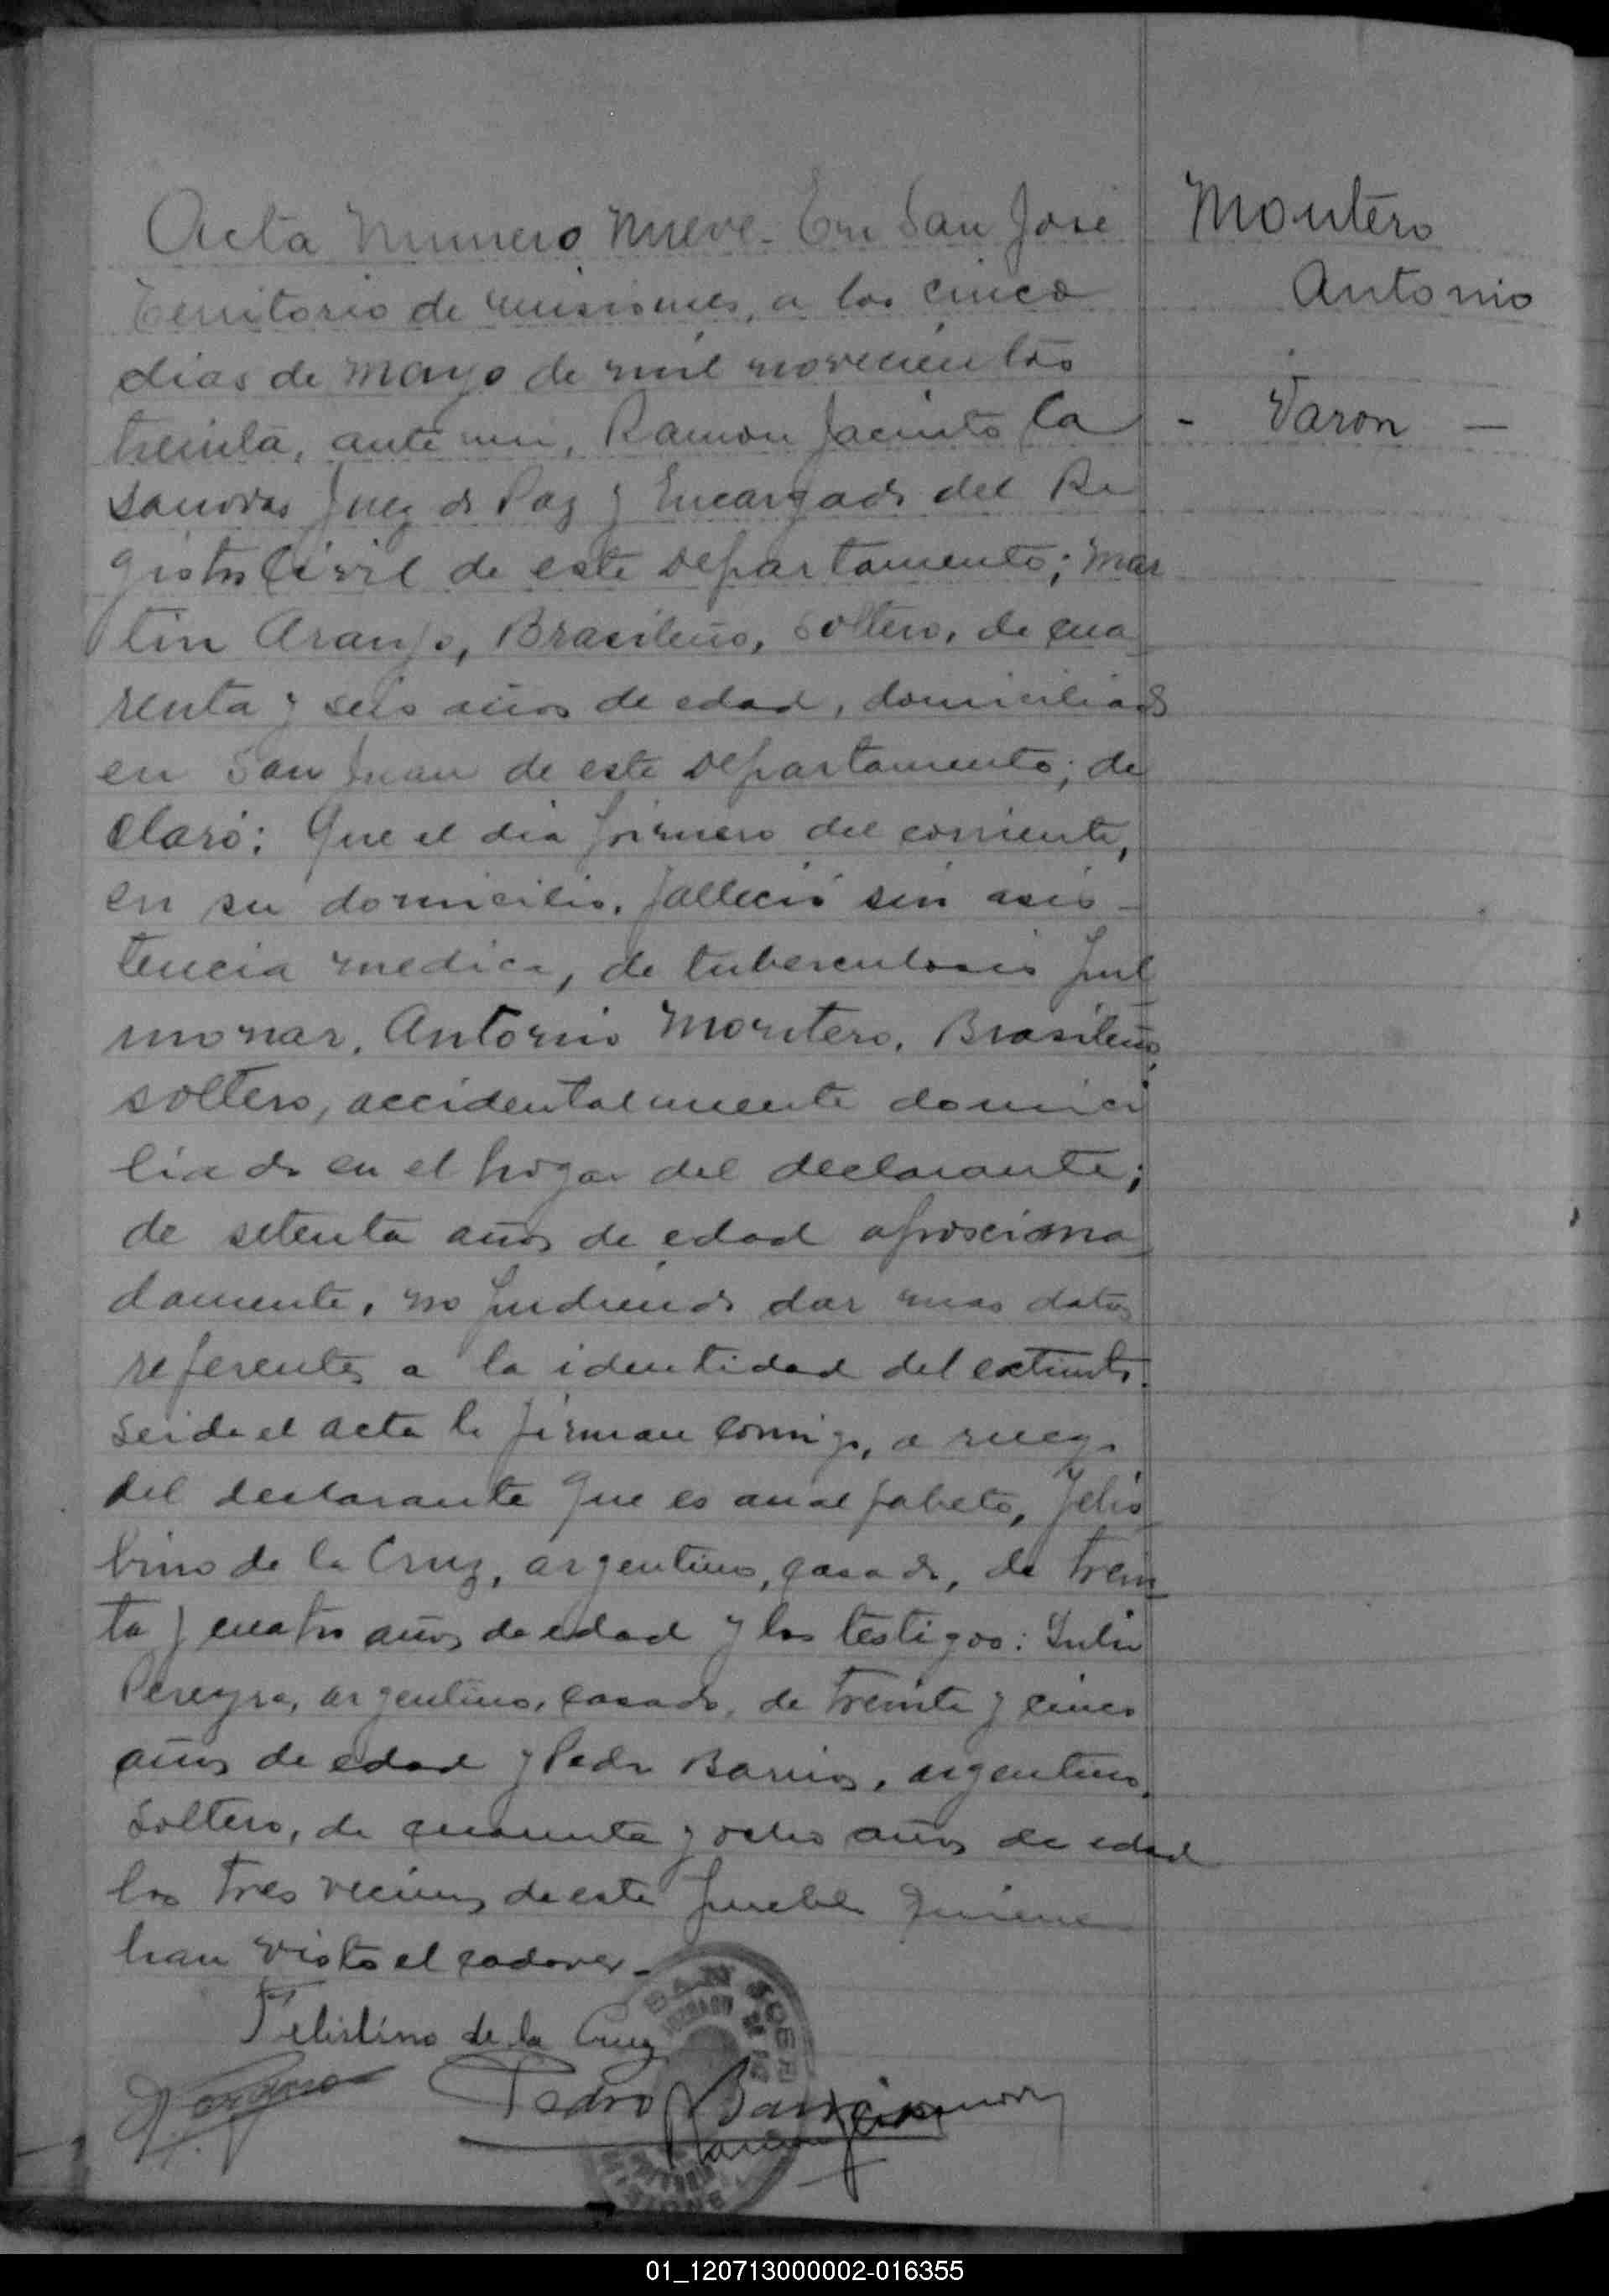 Acta Numero Nueve - En San José
Territorio de misiones, a los cinco
dias de mayo de mil novecientos
treinta, ante mi, Ramon Jacinto Ca
sanovas Juez de Paz y Encargado del Re
gistro Civil de este Departamento; Mar
tin Araujo, Brasileño, soltero, de cua
renta y seis años de edad, domiciliado
en San Juan de este Departamento; de
claró: Que el dia primero del corriente,
en su domicilio, falleció sin asis-
tencia medica, de tuberculosis pul
monar, Antonio Montero, Brasileño,
soltero, accidentalmente domici
liado en el hogar del declarante;
de setenta años de edad aproscima
damente, no pudiendo dar mas datos
referentes a la identidad del extinto.
Leida el acta la firman comigo, a ruego
del declarante que es analfabeto, Felis
bino de la Cruz, argentino, casado, de trein
ta y cuatro años de edad y los testigos: Julio
Pereyra, argentino, casado, de treinta y cinco
años de edad y Pedro Barrios, argentino,
soltero, de cuarenta y ocho años de edad
los tres vecinos de este pueblo quienes
han visto el cadaver.-
Felisbino de la Cruz
Pedro Barrios
Montero
Antonio
- Varon -
01_120713000002-016355